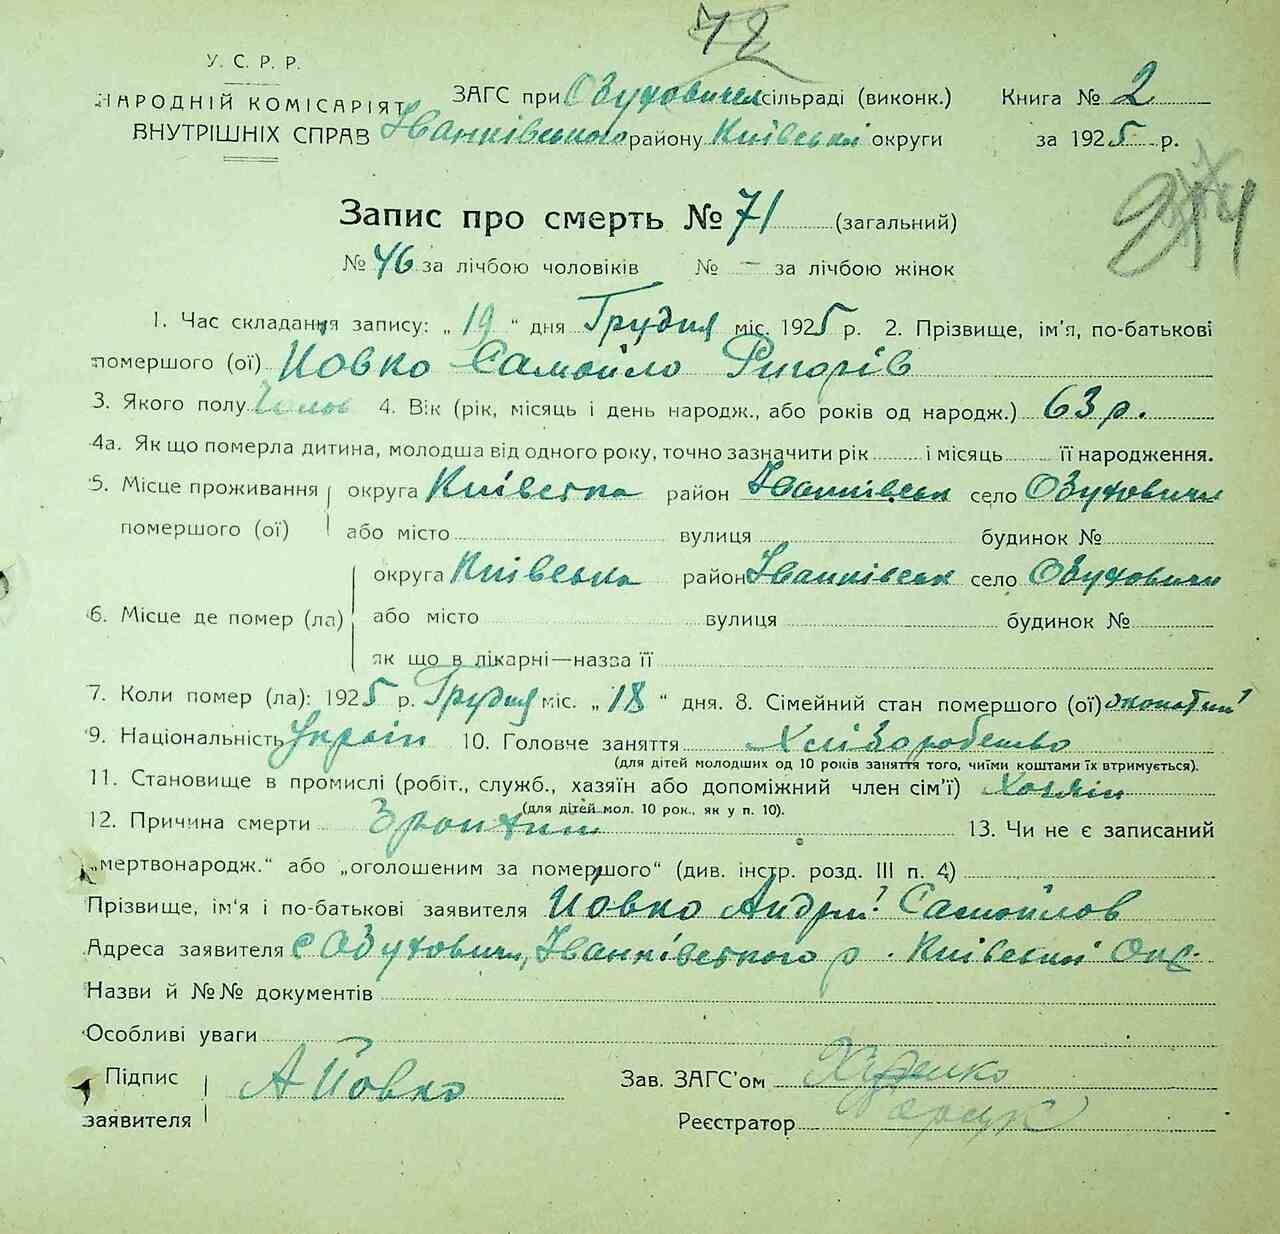 72
У. С. Р. Р.
НАРОДНІЙ КОМІСАРІЯТ
ВНУТРІШНІХ СПРАВ
ЗАГС при Обуховичск сільраді (виконк.)
Іванківського району Київської округи
Книга № 2
за 1925 р.
Запис про смерть № 71 (загальний)
№ 46 за лічбою чоловіків № – за лічбою жінок
1. Час складання запису: „ 19 “ дня Грудня міс. 1925 р. 2. Прізвище, ім'я, по-батькові
помершого (ої) Йовко Самойло Григорів
3. Якого полу Чолов 4. Вік (рік, місяць і день народж., або років од народж.) 63 р.
4а. Як що померла дитина, молодша від одного року, точно зазначити рік і місяць її народження.
5. Місце проживання округа Київська район Іванківськ село Обуховичи
помершого (ої) або місто вулиця будинок №
округа Київська район Іванківськ село Обуховичи
6. Місце де помер (ла) або місто вулиця будинок №
як що в лікарні—назва її
7. Коли помер (ла): 1925 р. Грудня міс. „ 18 “ дня. 8. Сімейний стан помершого (ої)
9. Національність Україн 10. Головче заняття Хліборобство
(для дітей молодших од 10 років заняття того, чиїми коштами їх втримується).
11. Становище в промислі (робіт., служб., хазяїн або допоміжний член сім'ї) Хозяїн
(для дітей мол. 10 рок., як у п. 10).
12. Причина смерти 13. Чи не є записаний
„мертвонародж.“ або „оголошеним за помершого“ (див. інстр. розд. III п. 4)
Прізвище, ім'я і по-батькові заявителя Йовко Андрій Самойлов
Адреса заявителя с Обуховичи, Іванківського р. Київської Окр.
Назви й №№ документів
Особливі уваги
Підпис
заявителя А Йовко
Зав. ЗАГС'ом
Реєстратор